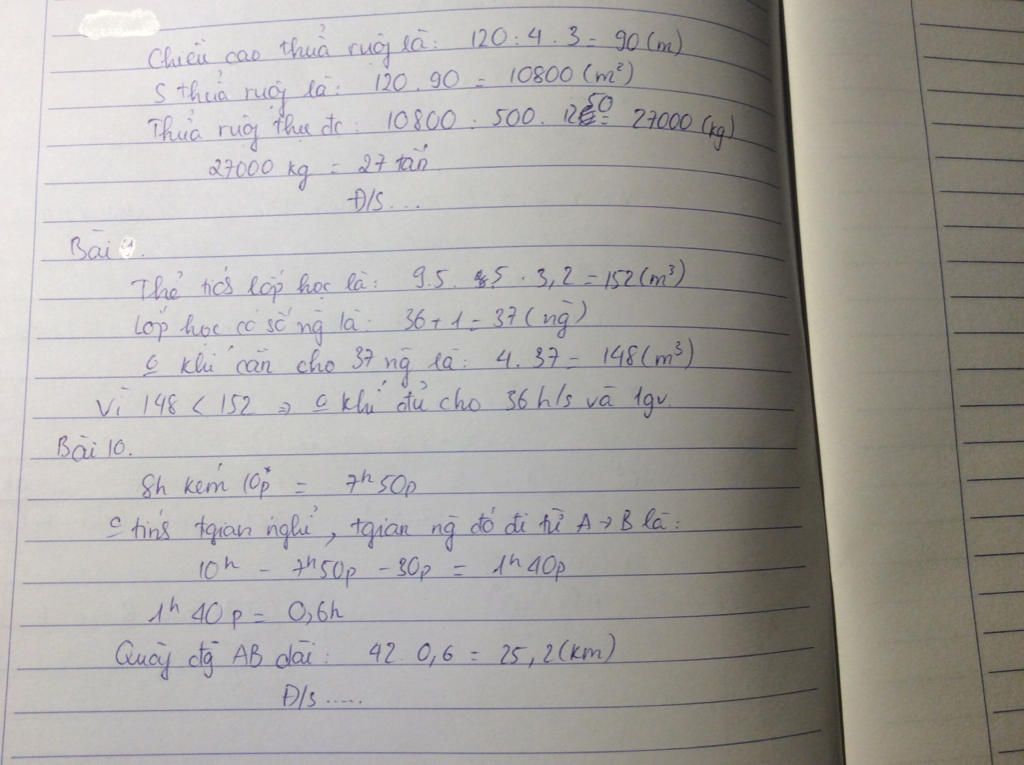 Chiều cao thửa ruộg là: 120 : 4 . 3 = 90 (m)
S thửa ruộg là: 120 . 90 = 10800 (m²)
Thửa ruộg thu đc: 10800 : 500 . 1250 = 27000 (kg)
27000 kg = 27 tấn
Đ/S ...
Bài 9.
Thể tích lớp học là: 9.5 . 5 . 3,2 = 152 (m³)
Lớp học có số ng là: 36 + 1 = 37 (ng)
khí cần cho 37 ng là: 4 . 37 = 148 (m³)
Vì 148 < 152 => khí đủ cho 36 h/s và 1gv.
Bài 10.
8h kém 10p = 7h 50p
tính tgian nghỉ, tgian ng đó đi từ A → B là:
10h - 7h50p - 30p = 1h 40p
1h 40p = 0,6h
Quãg đg AB dài: 42 . 0,6 = 25,2 (km)
Đ/S .....